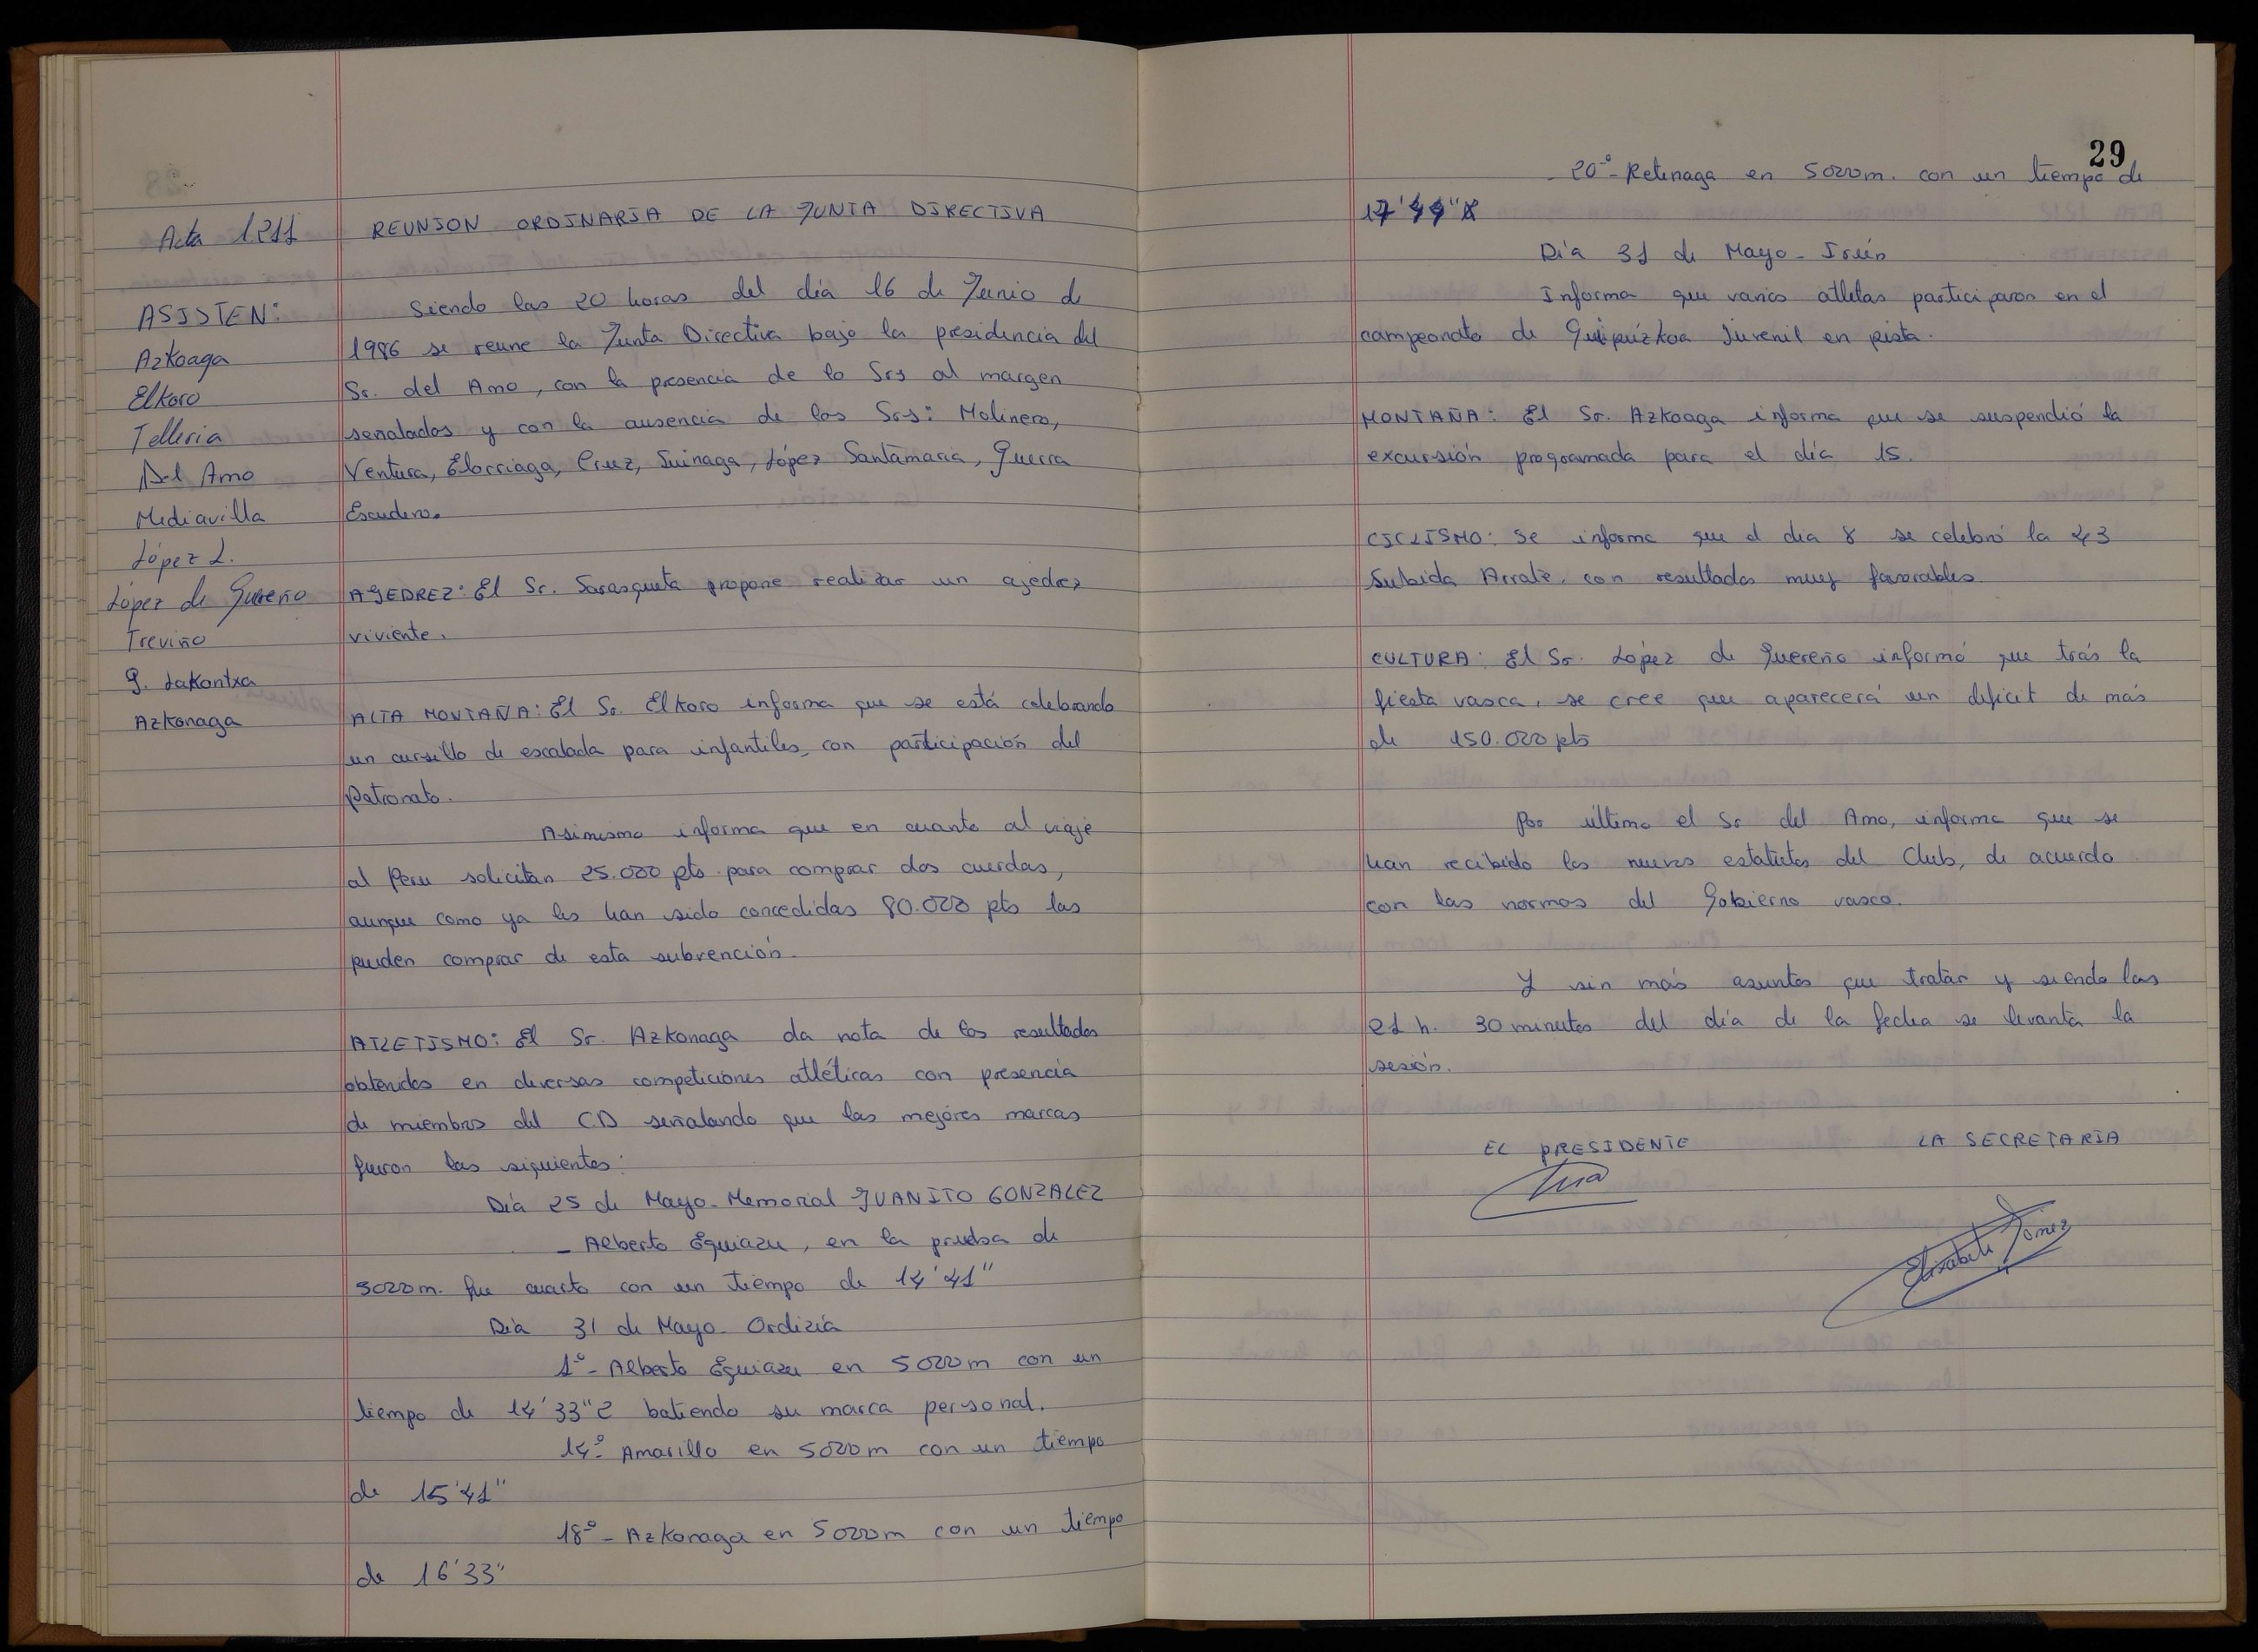 Acta 1211
REUNION ORDINARIA DE LA JUNTA DIRECTIVA
ASISTEN:
Azkoaga
Elkoro
Telleria
Del Amo
Mediavilla
López L.
López de Guereño
Treviño
G. Lakontxa
Azkonaga
Siendo las 20 horas del día 16 de Junio de
1986 se reune la Junta Directiva bajo la presidencia del
Sr. del Amo, con la presencia de lo Srs al margen
señalados y con la ausencia de los Srs: Molinero,
Ventura, Elorriaga, Cruz, Suinaga, López Santamaria, Guerra
Escudero.
AJEDREZ: El Sr. Sarasqueta propone realizar un ajedrez
viviente.
ALTA MONTAÑA: El Sr. Elkoro informa que se está celebrando
un cursillo de escalada para infantiles, con participación del
Patronato.
Asimismo informa que en cuanto al viaje
al Peru solicitan 25.000 pts para comprar dos cuerdas,
aunque como ya les han sido concedidas 80.000 pts las
pueden comprar de esta subvención.
ATLETISMO: El Sr. Azkonaga da nota de los resultados
obtenidos en diversas competiciones atléticas con presencia
de miembros del CD señalando que las mejores marcas
fueron las siguientes:
Día 25 de Mayo- Memorial JUANITO GONZALEZ
- Alberto Eguiazu, en la prueba de
5000m. fue cuarto con un tiempo de 14'41"
Día 31 de Mayo- Ordizia
1º- Alberto Eguiazu en 5000m con un
tiempo de 14'33"2 batiendo su marca personal.
14º- Amarillo en 5000m con un tiempo
de 15'41"
18º- Azkonaga en 5000m con un tiempo
de 16'33"
29
20º- Retenaga en 5000m. con un tiempo de
17'44"8
Día 31 de Mayo- Irún
Informa que varios atletas participaron en el
campeonato de Guipúzkoa Juvenil en pista.
MONTAÑA: El Sr. Azkoaga informa que se suspendió la
excursión programada para el día 15.
CICLISMO: Se informa que el dia 8 se celebró la 43
Subida Arrate, con resultados muy favorables.
CULTURA: El Sr. López de Guereño informó que trás la
fiesta vasca, se cree que aparecerá un deficit de más
de 150.000 pts
Por último el Sr del Amo, informa que se
han recibido los nuevos estatutos del Club, de acuerdo
con las normas del Gobierno vasco.
Y sin más asuntos que tratar y siendo las
21 h. 30 minutos del día de la fecha se levanta la
sesión.
EL PRESIDENTE LA SECRETARIA
Elisabete Gómez